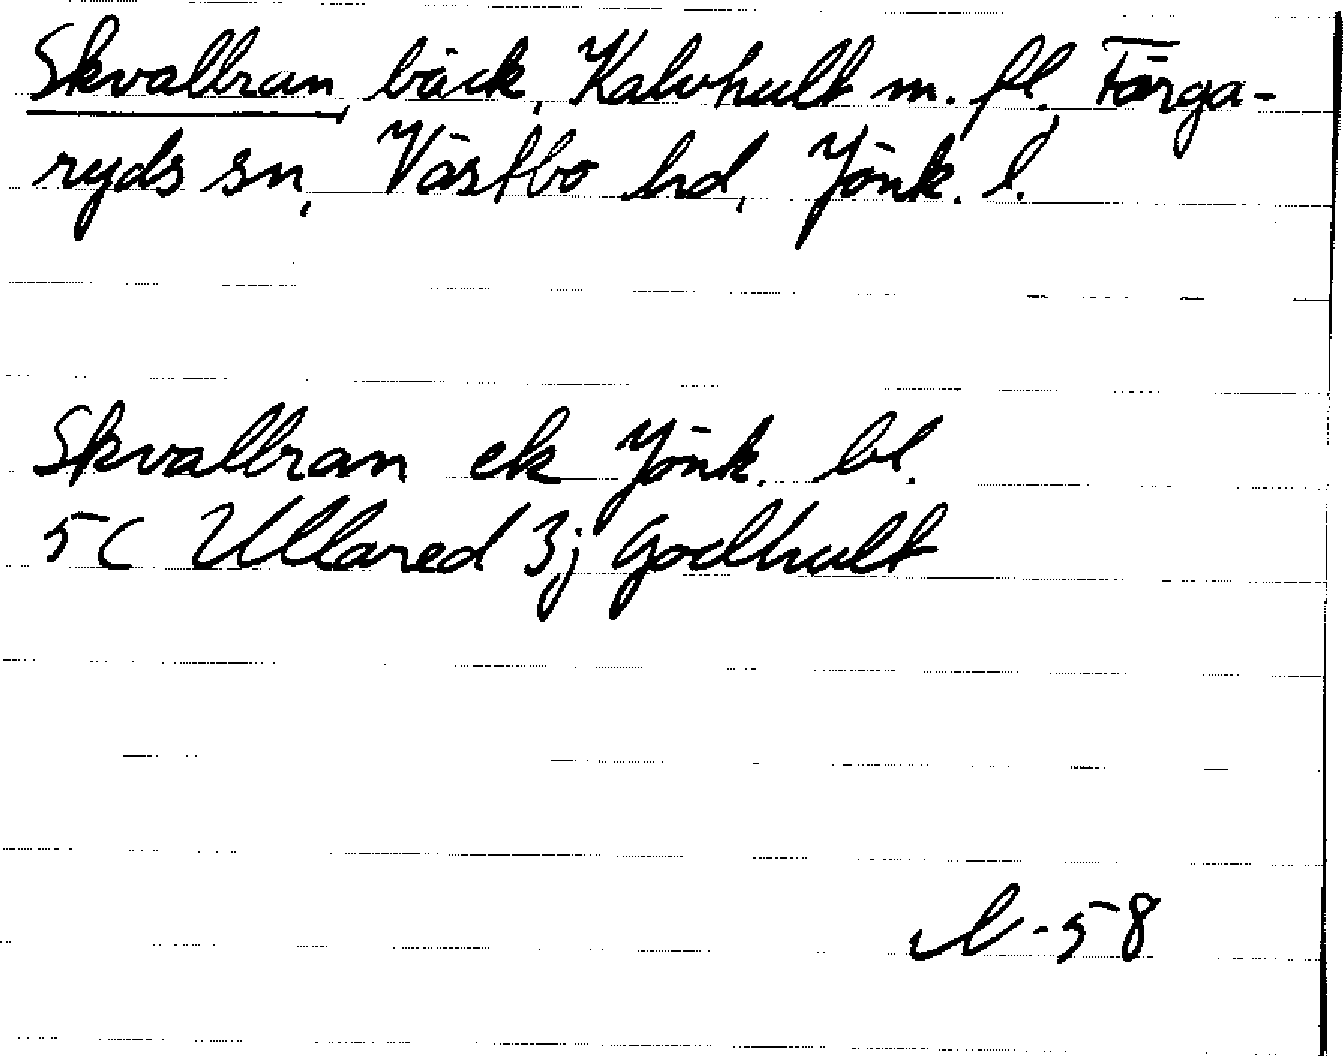 Skvallran, bäck, Kalvhult m. fl. Färga-
ryds sn, Västbo hd, Jönk. l.
Skvallran ek Jönk. bl.
5C Ullared 3j Godhult
-58